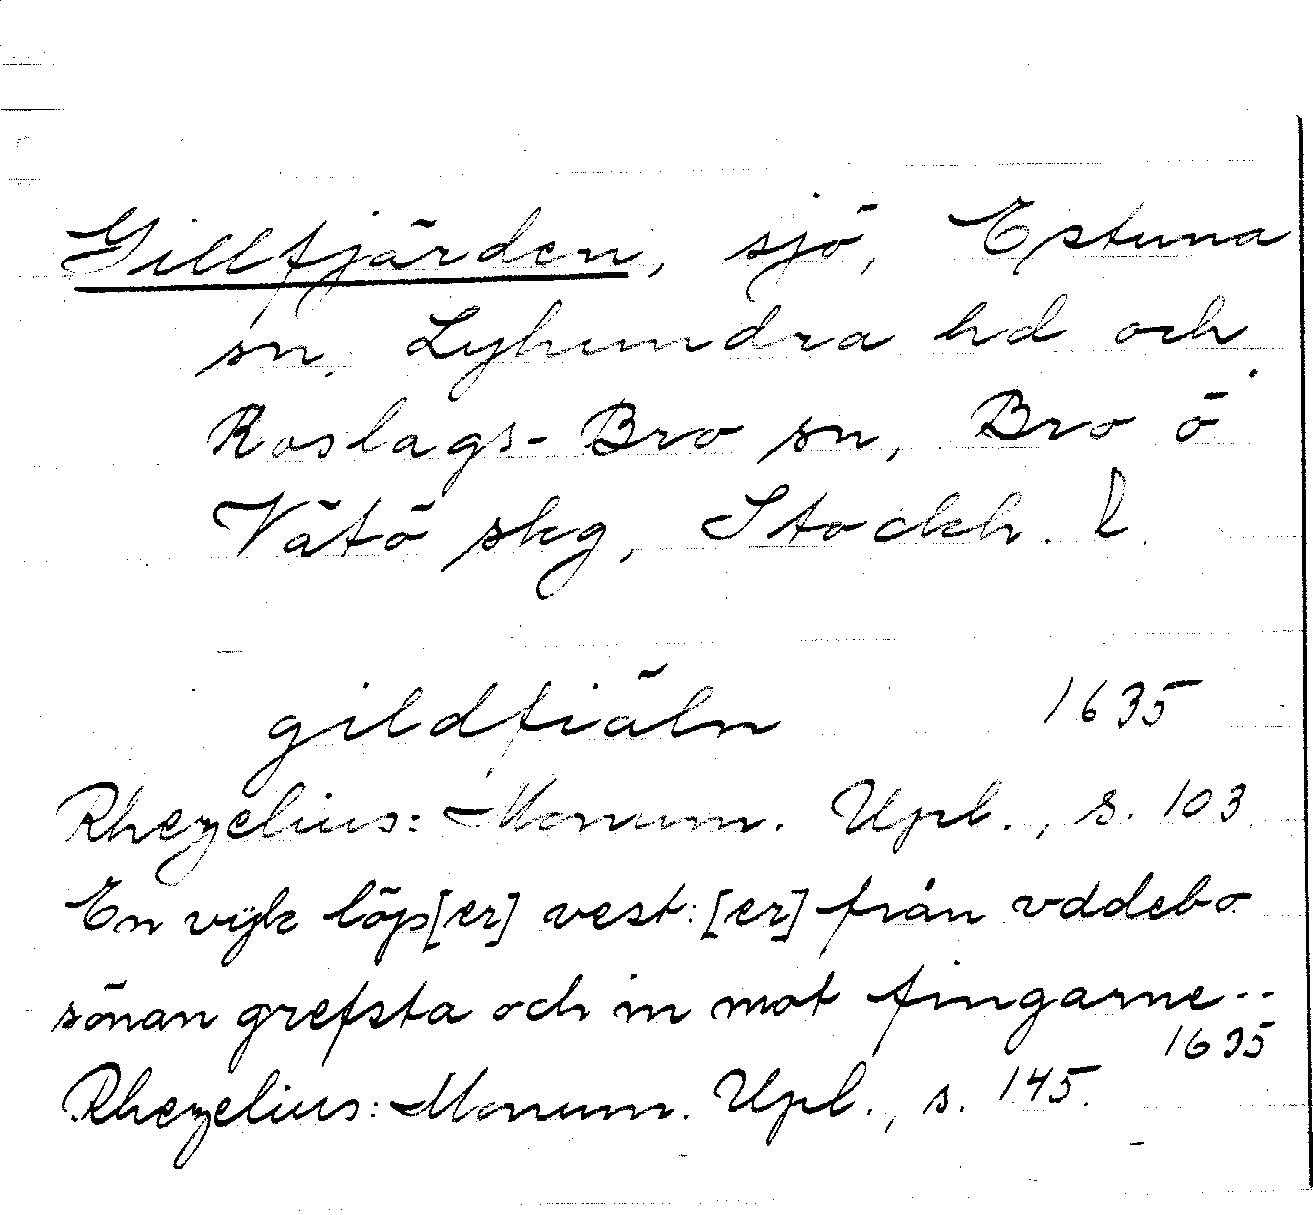 Gillfjärden, sjö, Estuna
sn, Lyhundra hd och
Roslags-Bro sn, Bro o
Vätö skg, Stockh. l.
gildfiäln 1635
Rhezelius: Monum. Upl., s. 103
En vijk löp[er] vest:[er] från vddebo
sönan grefsta och in mot fingarne--
1635
Rhezelius: Monum. Upl., s. 145.